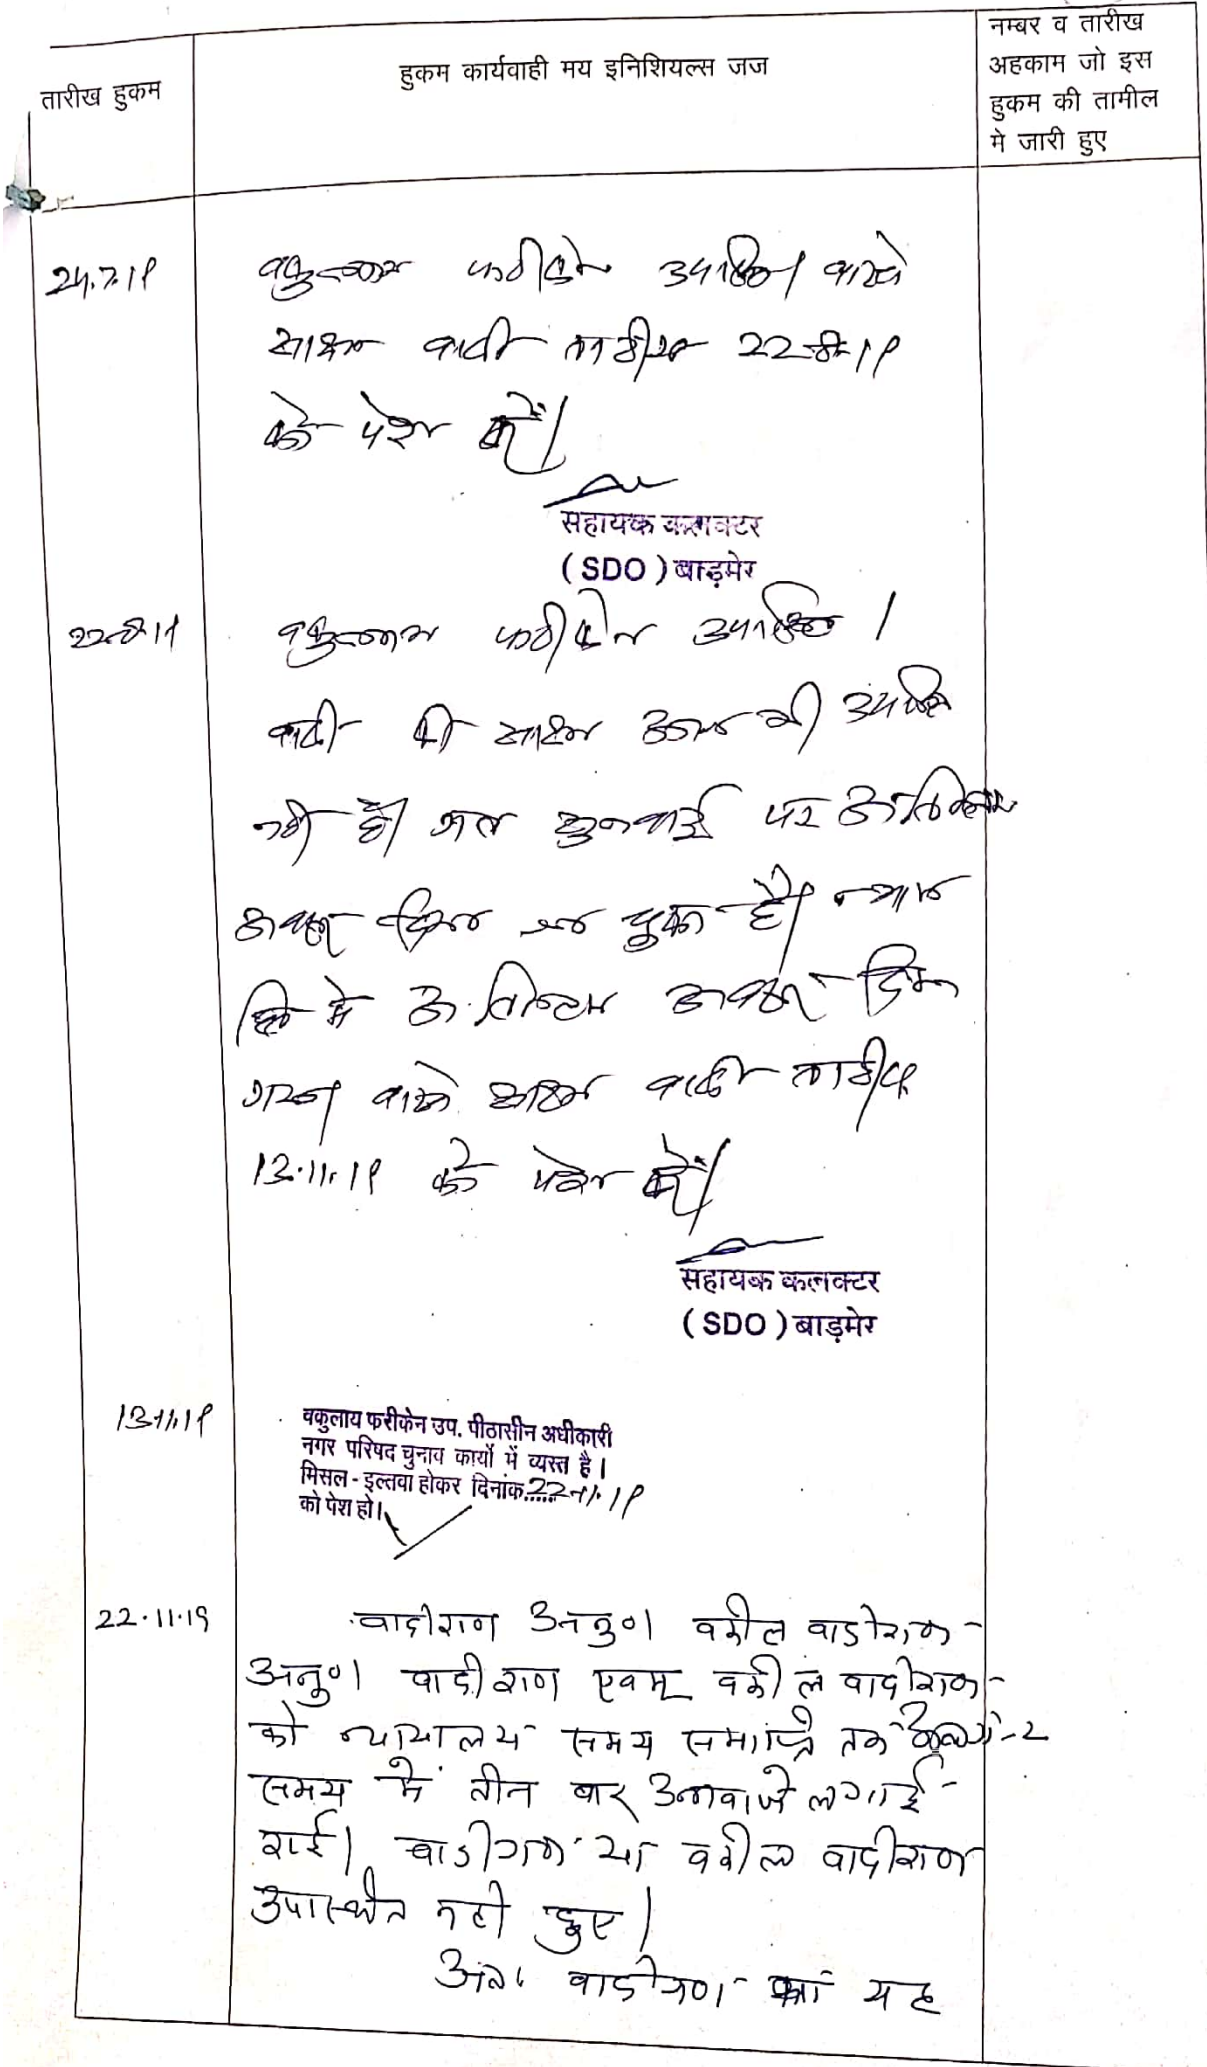 तारीख हुकम
हुकम कार्यवाही मय इनिशियल्स जज
नम्बर व तारीख
अहकाम जो इस
हुकम की तामील
मे जारी हुए
24.7.19
वकुलाय फरीकेन उपस्थित। वास्ते
साक्ष्य वादी तारीख 22-8-19
को पेश करें।
सहायक कलक्टर
( SDO ) बाड़मेर
22-8-19
वकुलाय फरीकेन उपस्थित ।
वादी की साक्ष्य आज भी उपस्थित
नही है। गत सुनवाई पर अन्तिम
अवसर दिया जा चुका है। न्याय
हित मे अन्तिम अवसर दिया
गया। वास्ते साक्ष्य वादी तारीख
13.11.19 को पेश करें।
सहायक कलक्टर
( SDO ) बाड़मेर
13-11-19
वकुलाय फरीकेन उप. पीठासीन अधीकारी
नगर परिषद चुनाव कार्यो में व्यस्त है।
मिसल - इल्तवा होकर दिनांक.....22-11-19
को पेश हो।
22.11.19
वादीगण अनु०। वकील वादीगण
अनु०। वादीगण एवम् वकील वादीगण
को न्यायालय समय समाप्ति तक
समय में तीन बार आवाजे लगाई
गई। वादीगण या वकील वादीगण
उपास्थित नही हुए।
अतः वादीगण का यह